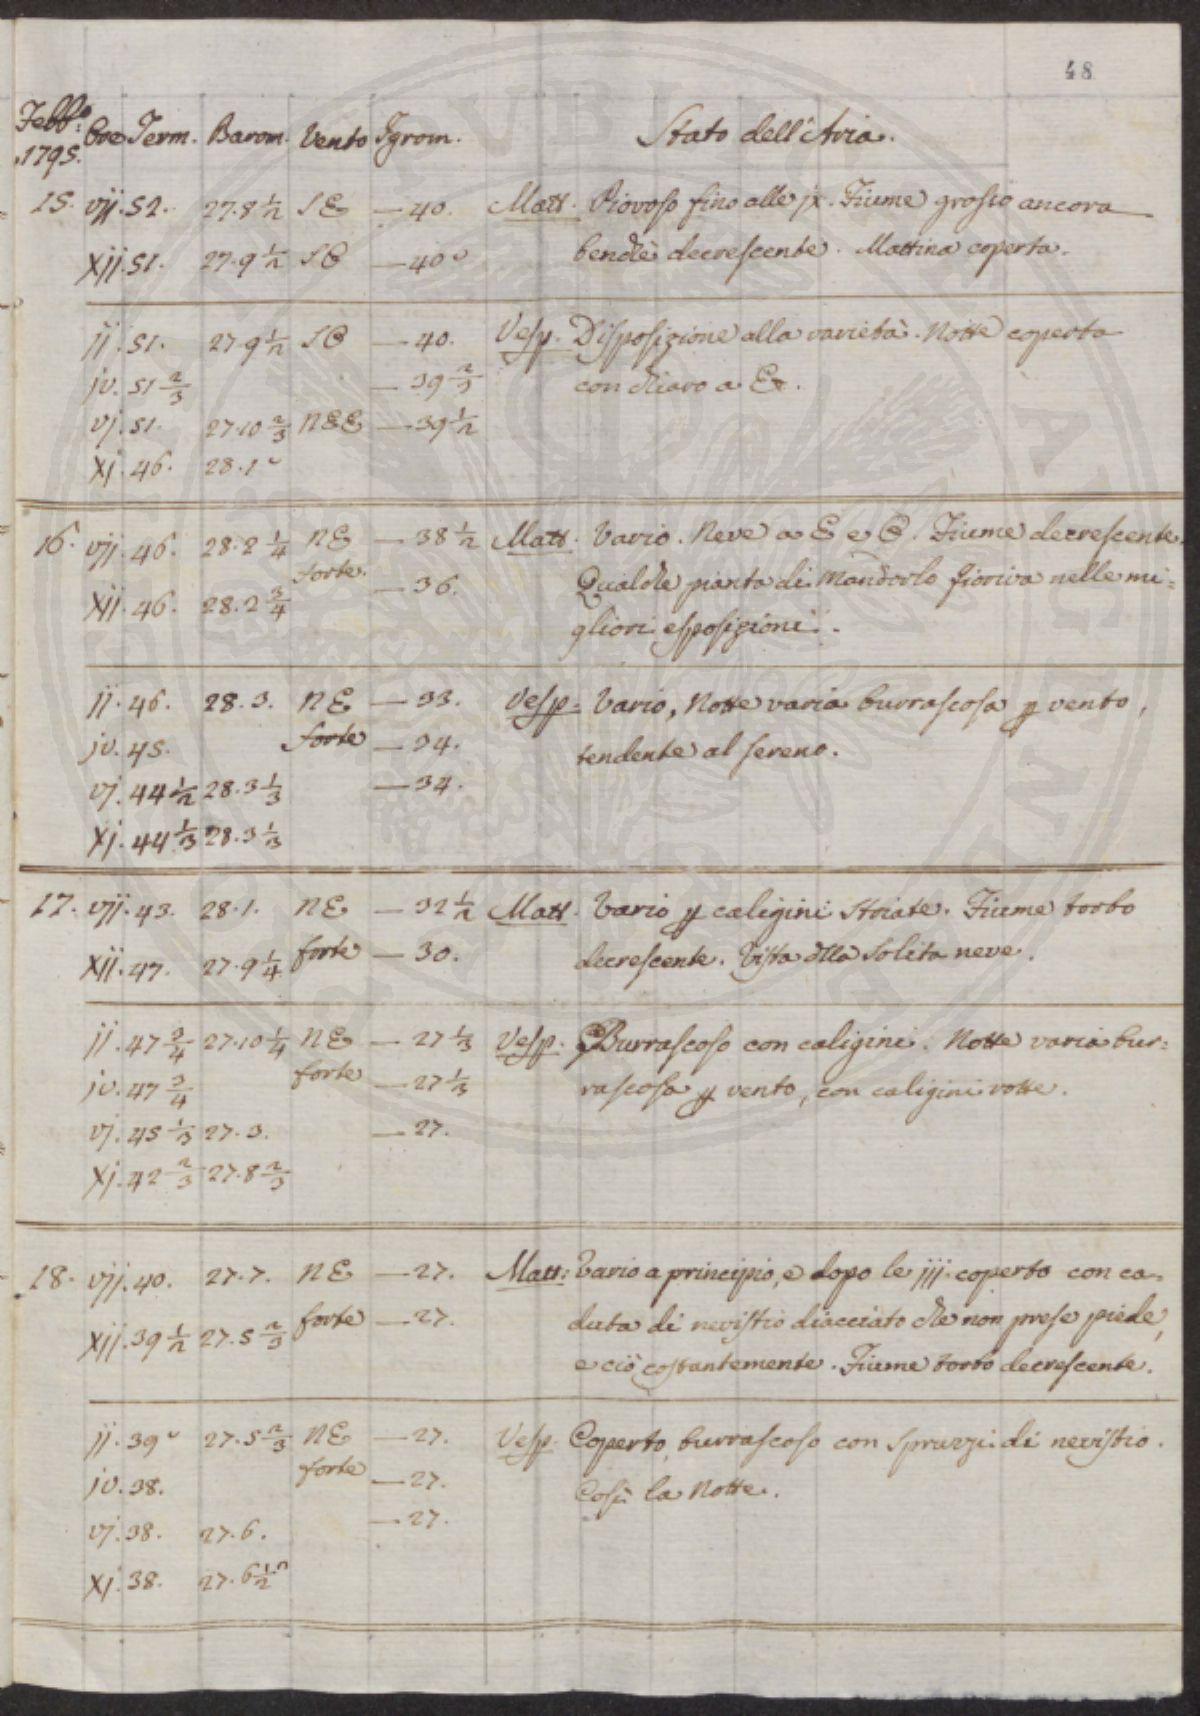 48
Febb.º 1795. Ore Term. Barom. Vento Igrom. Stato dell'Aria.
15. vij. 52. 27.8 1/2 SE — 40. Matt. Piovoso fino alle jx. Fiume grosso ancora
benchè decrescente. Mattina coperta.
xij. 51. 27.9 1/2 SO — 40
ij. 51. 27.9 1/2 SO — 40. Vesp. Disposizione alla varietà. Notte coperta
iv. 51 2/3 — 39 2/3 con chiaro a E.
vj. 51. 27.10 2/3 NEE — 39 1/2
xj. 46. 28.1
16. vij. 46. 28.2 1/4 NE — 38 1/2 Matt. Vario. Neve a E e O. Fiume decrescente.
forte.
xij. 46. 28.2 3/4 — 36. Qualche pianta di Mandorlo fioriva nelle mi=
gliori esposizioni.
ij. 46. 28.3. NE — 33. Vesp. Vario, Notte varia burrascosa p vento,
iv. 45. forte — 34. tendente al sereno.
vj. 44 1/2 28.3 1/3 — 34.
xj. 44 1/3 28.3 1/3
17. vij. 43. 28.1. NE — 32 1/2 Matt. Vario p caligini striate. Fiume torbo
xij. 47. 27.9 1/4 forte — 30. decrescente. Vista dlla solita neve.
ij. 47 3/4 27.10 1/4 NE — 27 1/3 Vesp. Burrascoso con caligini. Notte varia bur=
iv. 47 3/4 forte — 27 1/3 rascosa p vento, con caligini rotte.
vj. 45 1/3 27.3. — 27.
xj. 42 2/3 27.8 2/3
18. vij. 40. 27.7. NE — 27. Matt: Vario a principio, e dopo le iij. coperto con ca=
xij. 39 1/2 27.5 2/3 forte — 27. duta di nevistio diacciato che non prese piede,
e ciò costantemente. Fiume torbo decrescente.
ij. 39 27.5 2/3 NE — 27. Vesp. Coperto, burrascoso con spruzzi di nevistio.
iv. 38. forte — 27. Così la Notte.
vj. 38. 27.6. — 27.
xj. 38. 27.6 1/2